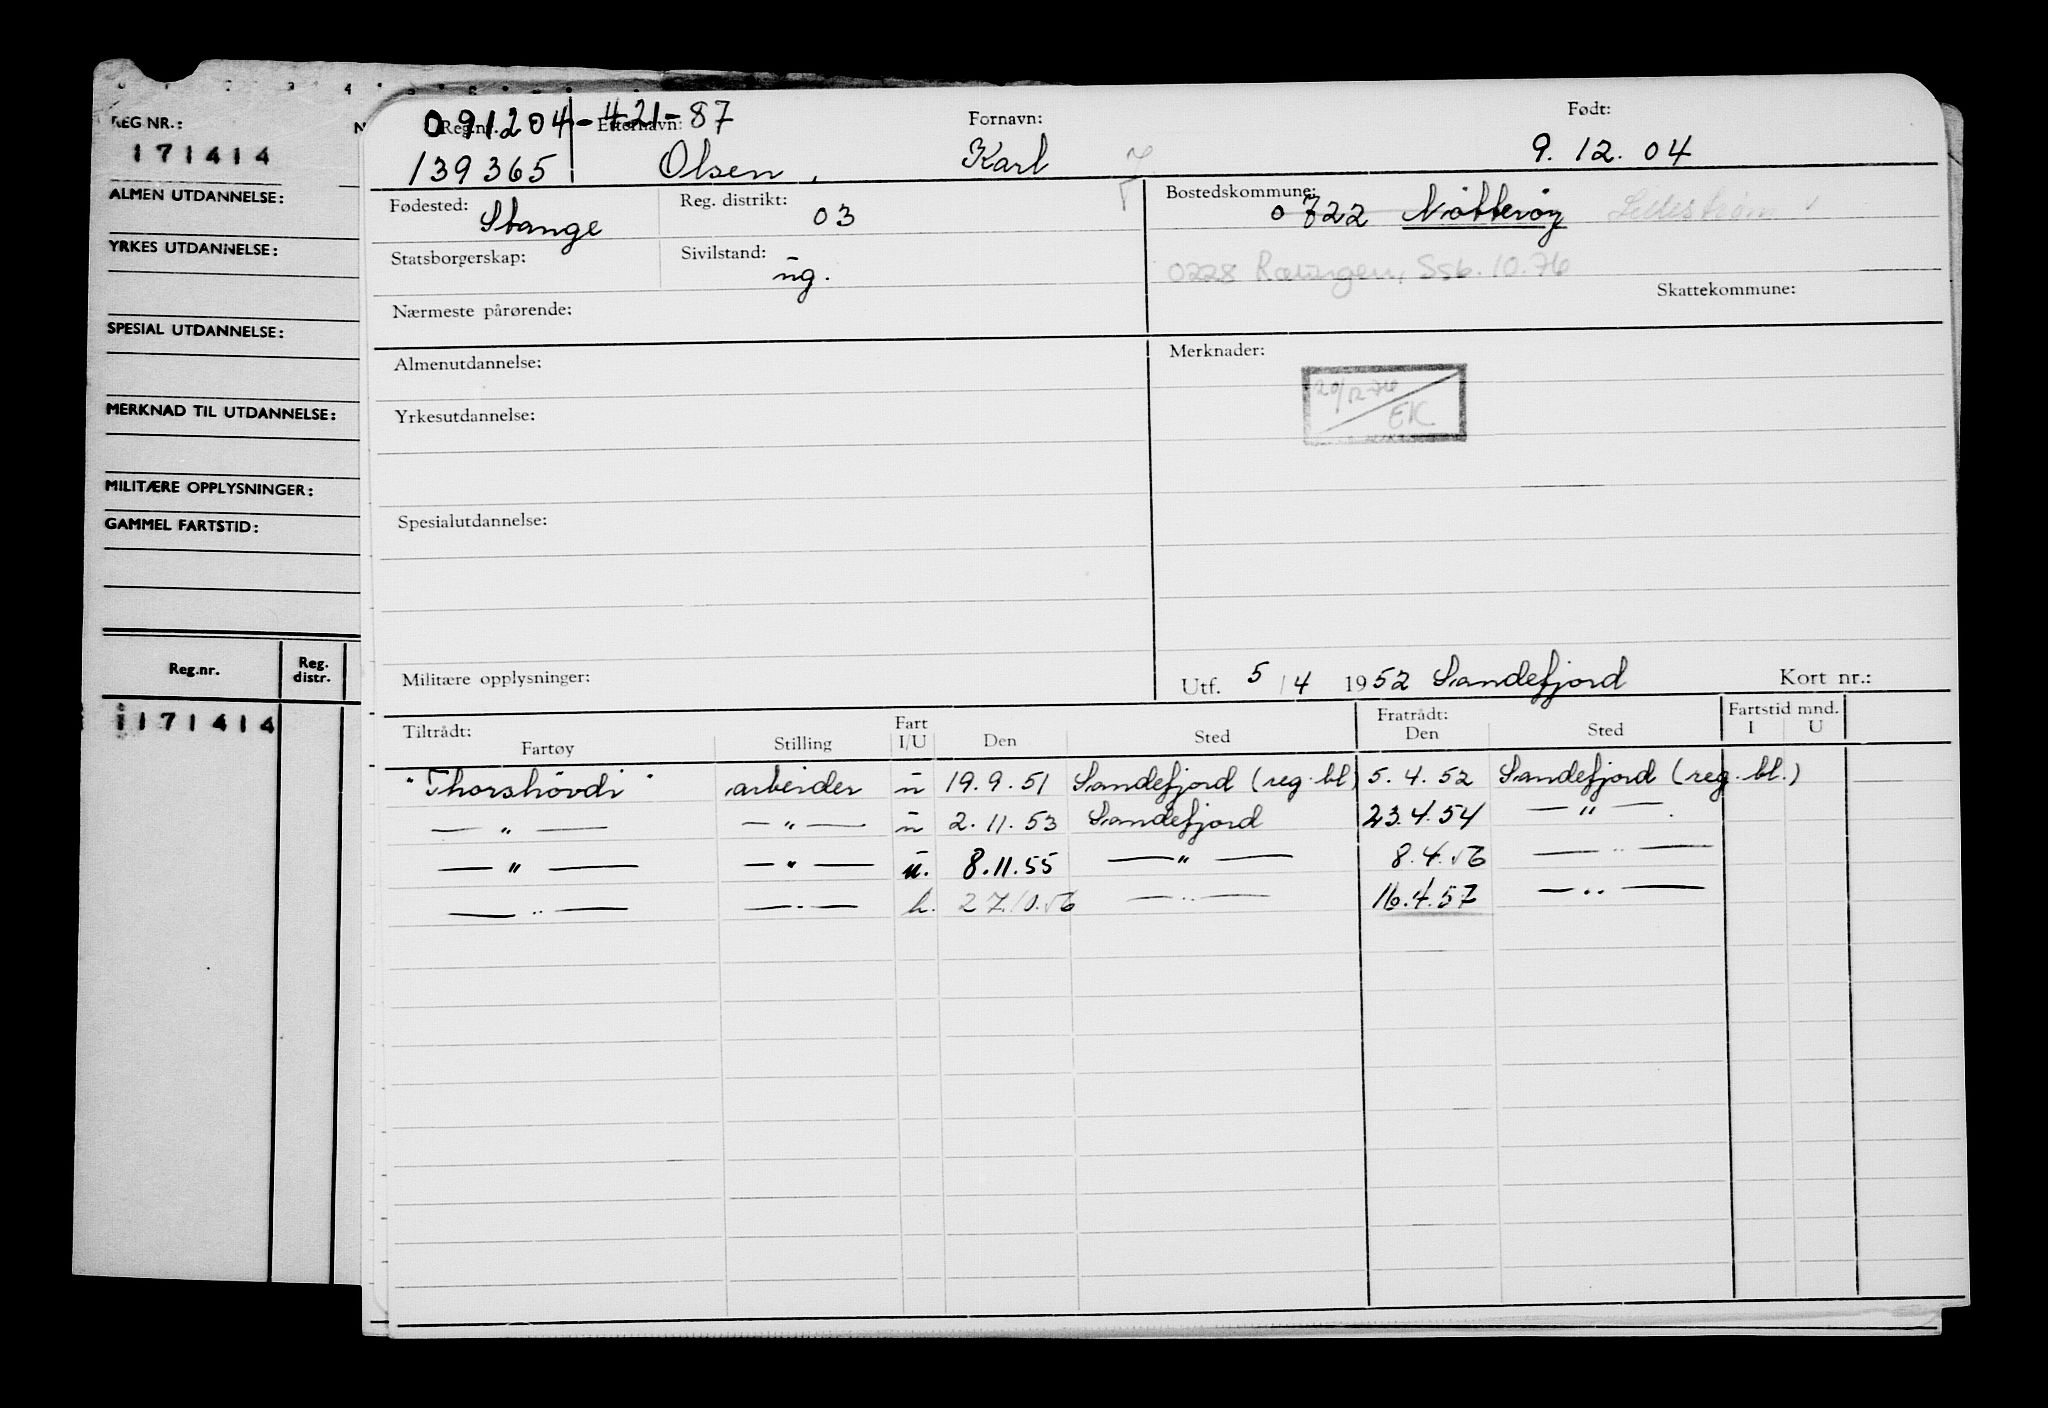 REG NR.:
171414
ALMEN UTDANNELSE:
YRKES UTDANNELSE:
SPESIAL UTDANNELSE:
MERKNAD TIL UTDANNELSE:
MILITÆRE OPPLYSNINGER:
GAMMEL FARTSTID:
Reg.nr. Reg. distr.
171414
091204-421-87
Reg.nr. Etternavn: Fornavn: Født:
139365 Olsen, Karl 9.12.04
Fødested: Stange Reg. distrikt: 03 Bostedskommune: 0722 Nötteröy Lillestrøm
Statsborgerskap: Sivilstand: ug. 0228 Rælingen, Ssb. 10.76
Nærmeste pårørende: Skattekommune:
Almenutdannelse: Merknader:
20/12-76 EK
Yrkesutdannelse:
Spesialutdannelse:
Militære opplysninger: Utf. 5/4 1952 Sandefjord Kort nr.:
Tiltrådt: Fart Fratrådt: Fartstid mnd.
Fartøy Stilling I/U Den Sted Den Sted I U
"Thorshövdi" arbeider u 19.9.51 Sandefjord (reg. bl) 5.4.52 Sandefjord (reg. bl.)
— " — — " — u 2.11.53 Sandefjord 23.4.54 — " —
— " — — " — u. 8.11.55 — " — 8.4.56 — " —
— " — — " — 27.10.56 — " — 16.4.57 — " —